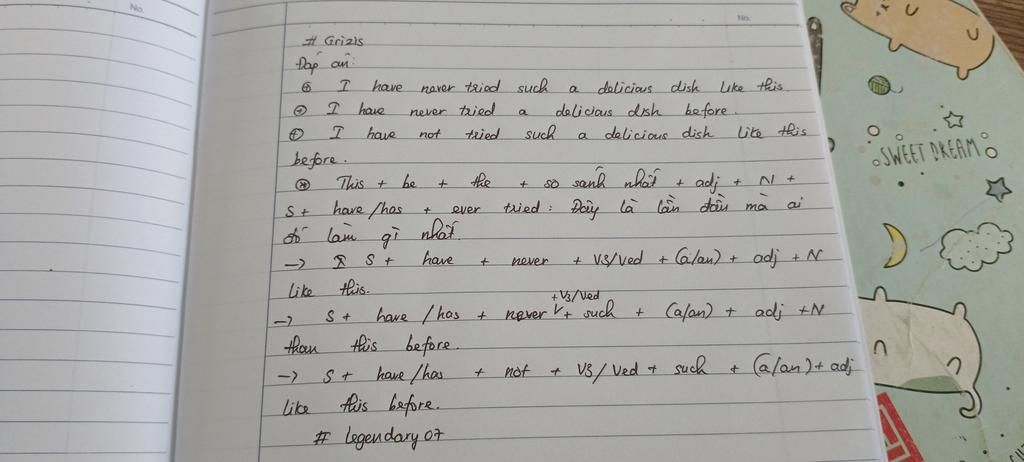 No.
No.
# Grizis
Đáp án:
⊕ I have never tried such a delicious dish like this.
⊕ I have never tried a delicious dish before.
⊕ I have not tried such a delicious dish like this
before.
⊛ This + be + the + so sánh nhất + adj + N +
S + have/has + ever tried: Đây là lần đầu mà ai
đó làm gì nhất.
→ S + have + never + V3/Ved + (a/an) + adj + N
like this.
+ V3/Ved
→ S + have/has + never + such + (a/an) + adj + N
than this before.
→ S + have/has + not + V3/Ved + such + (a/an) + adj
like this before.
# legendary07
SWEET DREAM